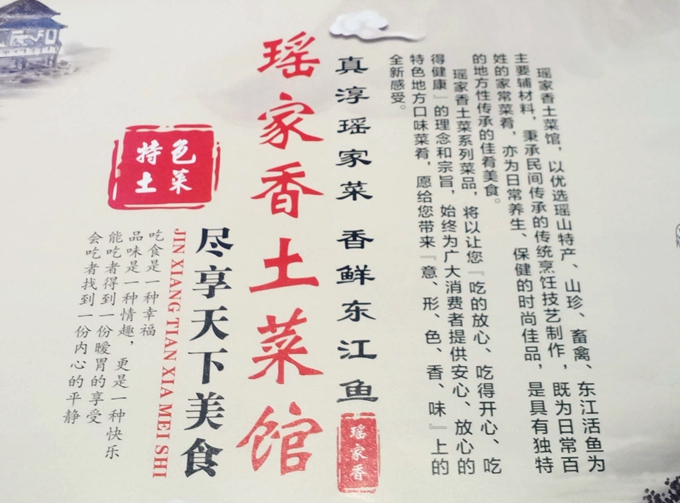 瑶家香土菜馆，以优选瑶山特产、山珍、畜禽、东江活鱼为
主要辅材料，秉承民间传承的传统烹饪技艺制作，既为日常百
姓的家常菜肴，亦为日常养生、保健的时尚佳品，是具有独特
的地方性传承的佳肴美食。
瑶家香土菜系列菜品，将以让您『吃的放心、吃得开心、吃
得健康』的理念和宗旨，始终为广大消费者提供安心、放心的
特色地方口味菜肴，愿给您带来『意、形、色、香、味』上的
全新感受。
真淳瑶家菜 香鲜东江鱼
瑶家香
瑶家香土菜馆
特色
土菜
尽享天下美食
JIN XIANG TIAN XIA MEI SHI
吃食是一种幸福
品味是一种情趣，更是一种快乐
能吃者得到一份暧胃的享受
会吃者找到一份内心的平静